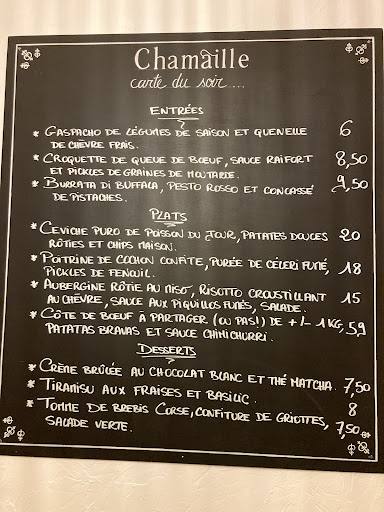 Chamaille
carte du soir...
ENTRÉES
* GASPACHO DE LÉGUMES DE SAISON ET QUENELLE 6
DE CHÈVRE FRAIS.
* CROQUETTE DE QUEUE DE BŒUF, SAUCE RAIFORT 8,50
ET PICKLES DE GRAINES DE MOUTARDE.
* BURRATA DI BUFFALA, PESTO ROSSO ET CONCASSÉ 9,50
DE PISTACHES.
PLATS
* CEVICHE PURO DE POISSON DU JOUR, PATATES DOUCES 20
RÔTIES ET CHIPS MAISON.
* POITRINE DE COCHON CONFITE, PURÉE DE CÉLERI FUMÉ, 18
PICKLES DE FENOUIL.
* AUBERGINE RÔTIE AU MISO, RISOTTO CROUSTILLANT 15
AU CHÈVRE, SAUCE AUX PIQUILLOS FUMÉS, SALADE.
* CÔTE DE BŒUF À PARTAGER (OU PAS!) DE +/- 1KG, 59
PATATAS BRAVAS ET SAUCE CHIMICHURRI.
DESSERTS
* CRÈME BRÛLÉE AU CHOCOLAT BLANC ET THÉ MATCHA. 7,50
* TIRAMISU AUX FRAISES ET BASILIC. 8
* TOMME DE BREBIS CORSE, CONFITURE DE GRIOTTES, 7,50
SALADE VERTE.